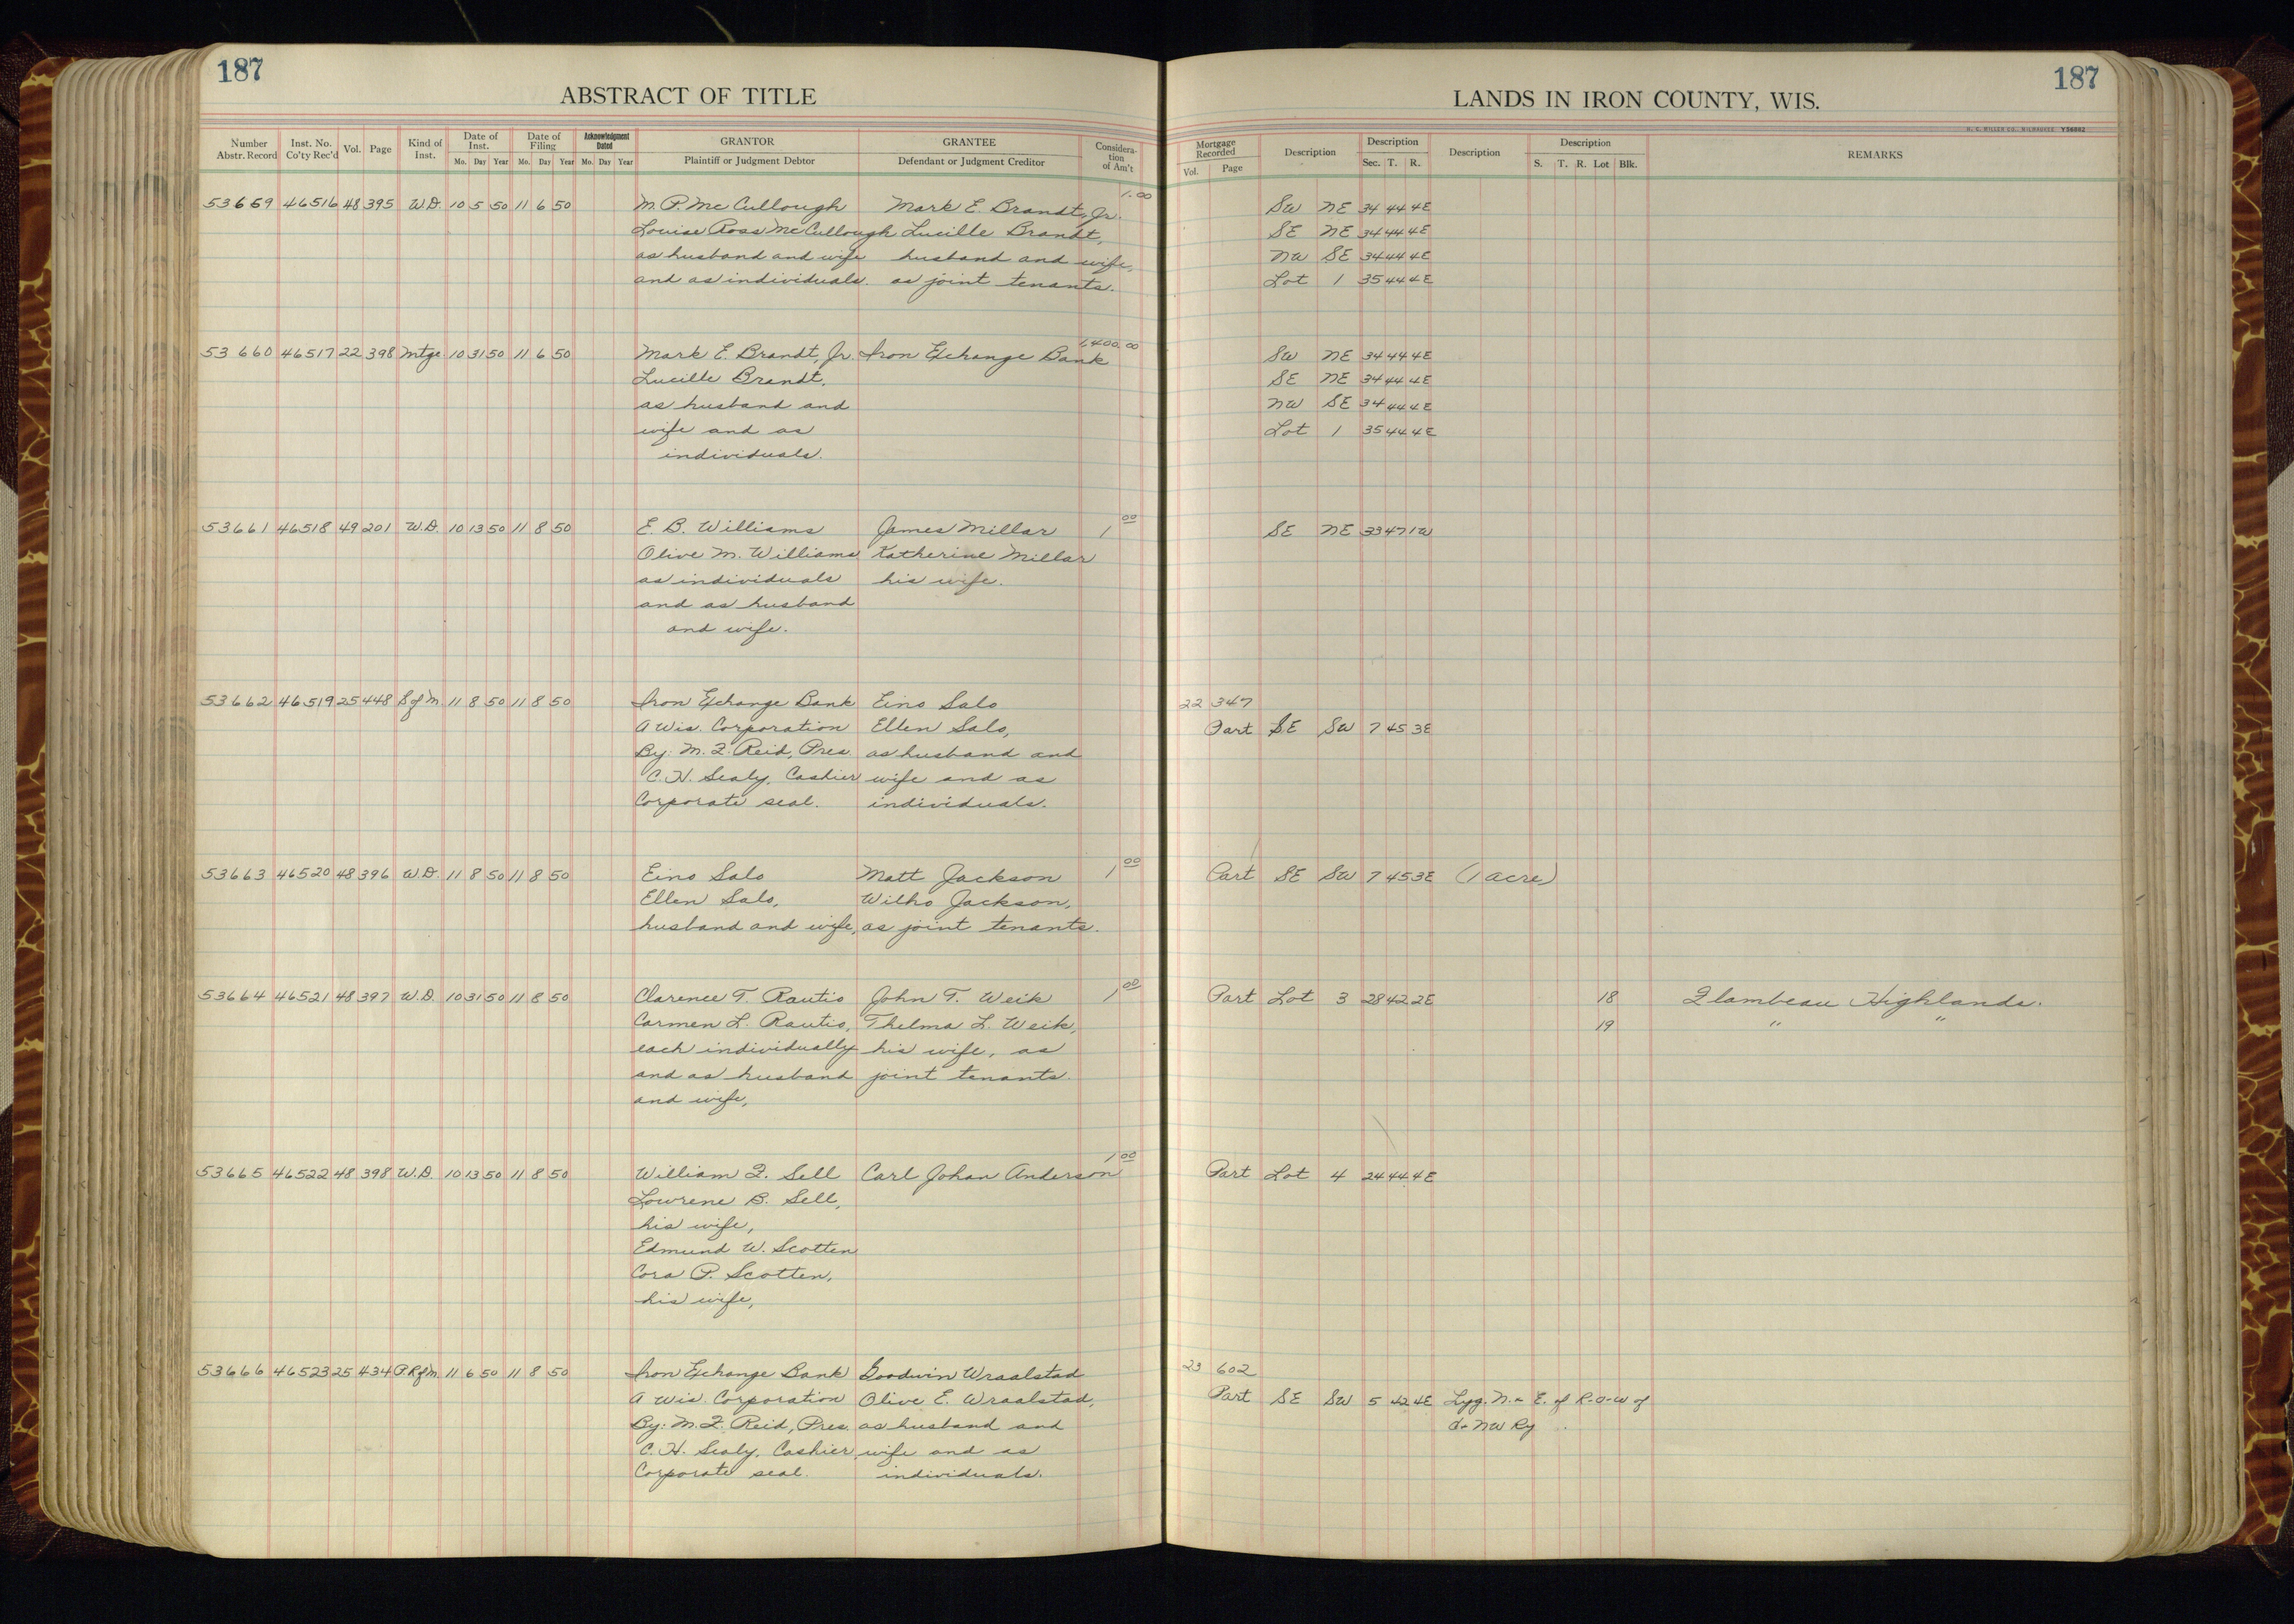 187
187
ABSTRACT OF TITLE
LANDS IN IRON COUNTY, WIS.
H. C. MILLER CO., MILWAUKEE Y56882
Number Abstr. Record Inst. No. Co'ty Rec'd Vol. Page Kind of Inst. Date of Inst. Mo. Day Year Date of Filing Mo. Day Year Acknowledgment Dated Mo. Day Year GRANTOR Plaintiff or Judgment Debtor GRANTEE Defendant or Judgment Creditor Considera-tion of Am't
Mortgage Recorded Vol. Page Description Description Sec. T. R. Description Description S. T. R. Lot Blk. REMARKS
53659 46516 48 395 W.D. 10 5 50 11 6 50 M. P. McCullough Mark E. Brandt, Jr. 1.00 SW NE 34 44 4E
Louise Ross McCullough Lucille Brandt, SE NE 34 44 4E
as husband and wife husband and wife, NW SE 34 44 4E
and as individuals. as joint tenants. Lot 1 35 44 4E
53660 46517 22 398 Mtge 10 31 50 11 6 50 Mark E. Brandt, Jr. Iron Exchange Bank 1,400.00 SW NE 34 44 4E
Lucille Brandt, SE NE 34 44 4E
as husband and NW SE 34 44 4E
wife and as Lot 1 35 44 4E
individuals.
53661 46518 49 201 W.D. 10 13 50 11 8 50 E. B. Williams James Millar 1 00 SE NE 33 47 1W
Olive M. Williams Katherine Millar
as individuals his wife.
and as husband
and wife.
53662 46519 25 448 S of M 11 8 50 11 8 50 Iron Exchange Bank Eino Salo 22 347
A Wis. Corporation Ellen Salo, Part SE SW 7 45 3E
By: M. F. Reid, Pres. as husband and
C. H. Sealy, Cashier wife and as
Corporate seal. individuals.
53663 46520 48 396 W.D. 11 8 50 11 8 50 Eino Salo Matt Jackson 1 00 Part SE SW 7 45 3E (1 acre)
Ellen Salo, Wilho Jackson,
husband and wife, as joint tenants.
53664 46521 48 397 W.D. 10 31 50 11 8 50 Clarence T. Rautio John T. Weik 1 00 Part Lot 3 28 42 2E 18 Flambeau Highlands.
Carmen L. Rautio, Thelma L. Weik, 19 " "
each individually his wife, as
and as husband joint tenants.
and wife,
53665 46522 48 398 W.D. 10 13 50 11 8 50 William F. Sell Carl Johan Anderson 1 00 Part Lot 4 24 44 4E
Lowrene B. Sell,
his wife,
Edmund W. Scotten
Cora P. Scotten,
his wife,
53666 46523 25 434 P.R of M 11 6 50 11 8 50 Iron Exchange Bank Goodwin Wraalstad 23 602
A Wis. Corporation Olive E. Wraalstad, Part SE SW 5 42 4E Lyg. N. & E. of R-O-W of
By: M. F. Reid, Pres. as husband and C & NW Ry
C. H. Sealy, Cashier wife and as
Corporate seal. individuals.